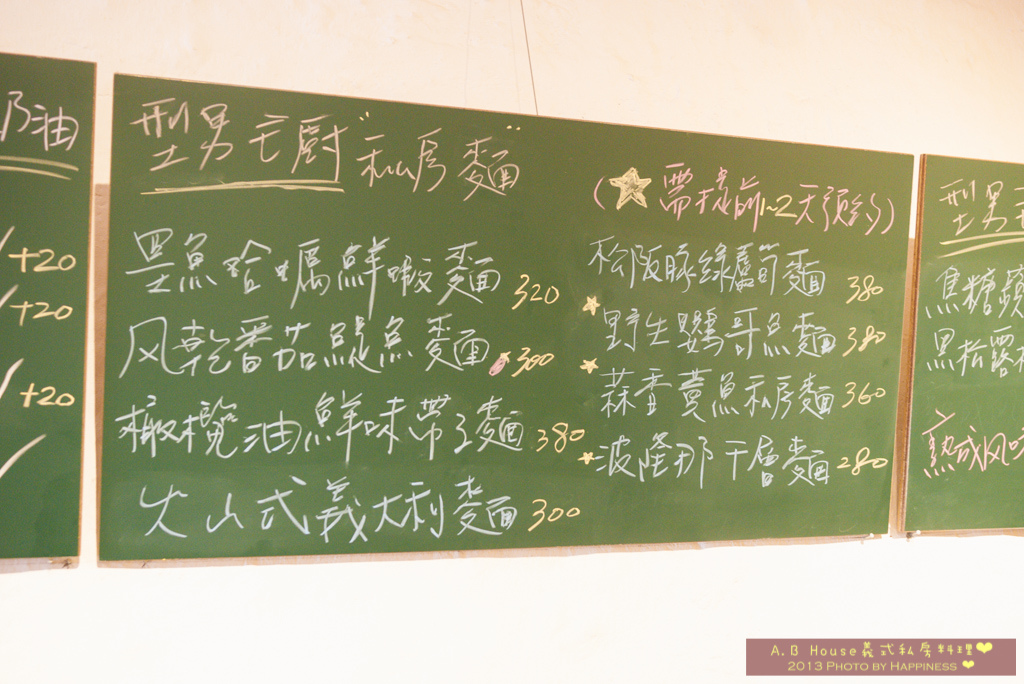 乃油
+20
+20
+20
型男主廚"私房麵"
墨魚哈囑鮮蝦麵 320
风乾番茄鯷魚麵 300
橄欖油鮮味帶子麵 380
火山式義大利麵 300
(☆需提前1~2天預約)
松阪豚綠蘆筍麵 380
野生鸚哥魚麵 380
蒜香鱼私房麵 360
波隆那千層麵 280
型男
焦糖
黑松露
熟成风
A.B House義式私房料理❤
2013 PHOTO BY HAPPINESS ❤